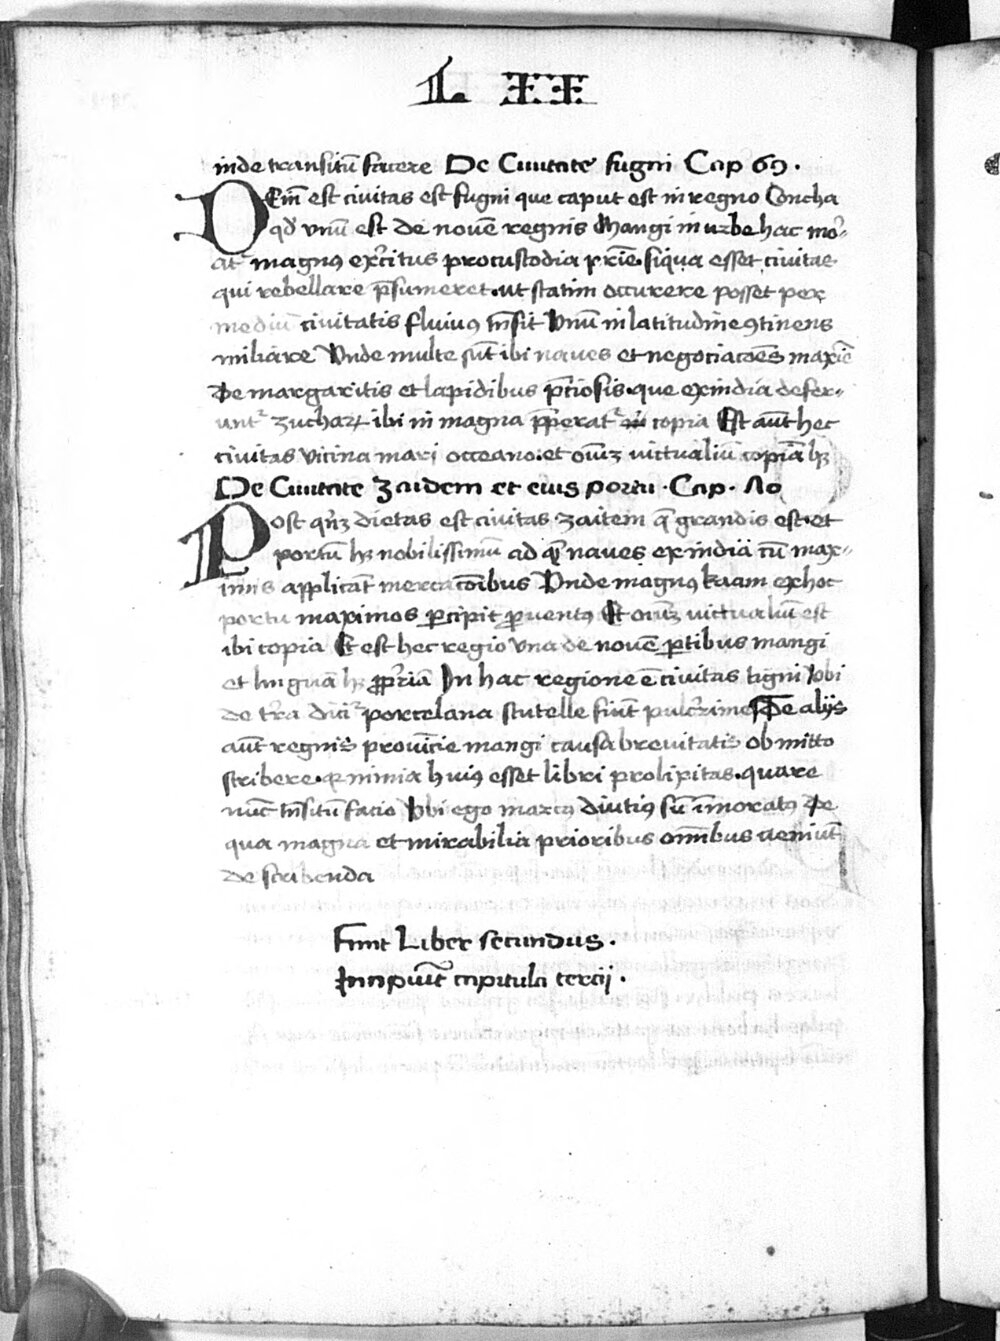 L XX
inde transitū facere De Ciuitate fugni Cap 69.
DEin̄ est civitas est fugni que caput est in regno Concha
qd̄ vnū est de nouē regnis Mangi in urbe hac mor-
at᷑ magnꝯ exr̄citus pro custodia pr̄ie. si qua esset civitas
qui rebellare p̄sumeret. ut statim occurere posset per
mediū civitatis fluviꝯ tn̄sit Vnū in latitudine ꝯtinens
miliare Vnde multe sūt ibi naves et negociacōēs maxīe
De margaritis et lapidibus p̄ciosis. que ex india defer-
unt᷑ zucharꝝ ibi in magna p̄perat᷑ copia Est aūt hec
civitas vicina mari occeano. et om̄iꝫ victualiū copiā hꝫ
De Ciuitate Zaidem et eius portu. Cap. Λo
Post qn̄ꝫ dietas est civitas zaitem q̄ grandis est. et
portū hꝫ nobilissimū ad qȝ naves ex india cū max-
imis applicāt mercacōibus Vnde magnꝯ kaam ex hoc
portu maximos ꝑcipit ꝓventꝯ Et om̄iꝫ victualiū est
ibi copia Et est hec regio vna de nouē ꝑtibus mangi
et linguā hꝫ ꝓpriā In hac regione ē civitas tigni Vbi
de tr̄a dr̄i᷑ porcelana scutelle fiūt pulcr̄ime De alijs
aūt regnis provīcie mangi causa brevitatis obmitto
scribere. qꝛ nimia huiꝯ esset libri prolixitas. quare
nūc tn̄situ facio Vbi ego marcꝯ diutiꝯ sū īmoratꝯ De
qua magna et mirabilia prioribus om̄ibus veniūt
describenda
Finit Liber secundus.
Incipiūt capitula tercij.